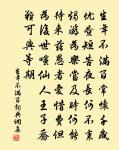 生年不滿百常懷千歲
憂晝短苦夜長何不秉
燭遊為樂當及時何能
待來茲愚者愛惜費但
為後世嗤仙人王子喬
難可與等期
生年不滿百 詞典網書